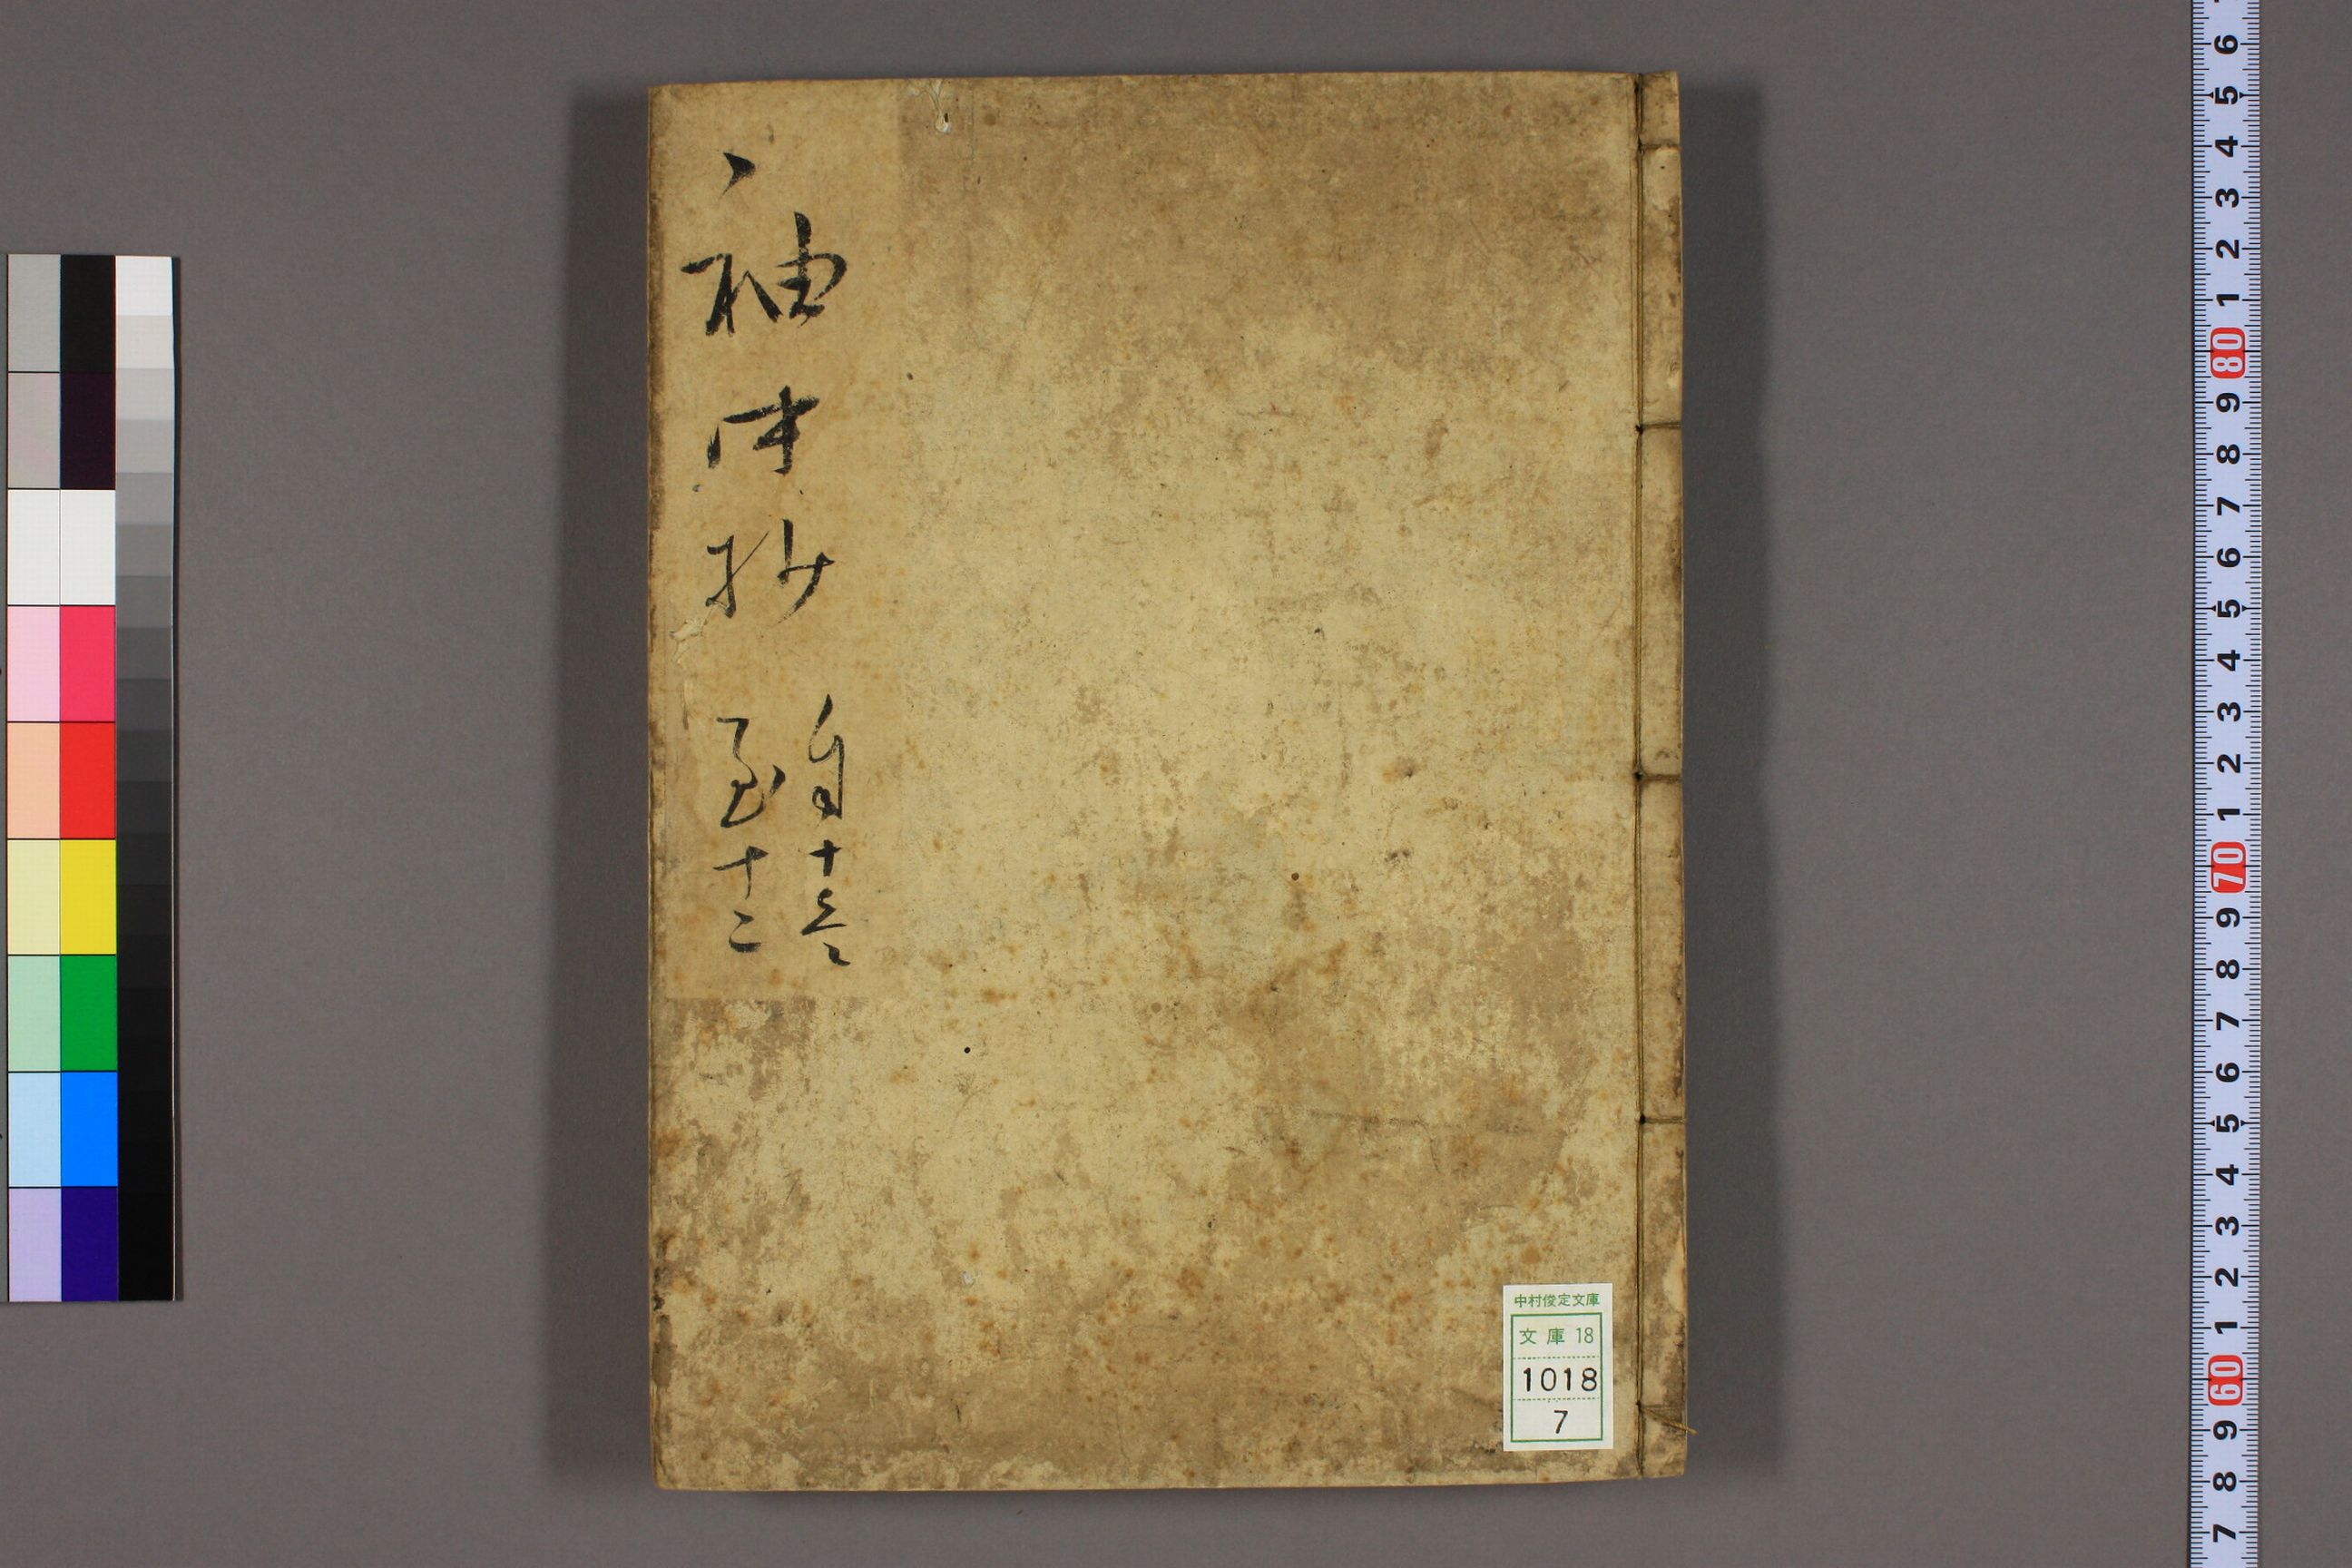 袖中抄
自十巻
至十二
中村俊定文庫
文庫 18
1018
7
6 5 4 3 2 1 80 9 8 7 6 5 4 3 2 1 70 9 8 7 6 5 4 3 2 1 60 9 8 7